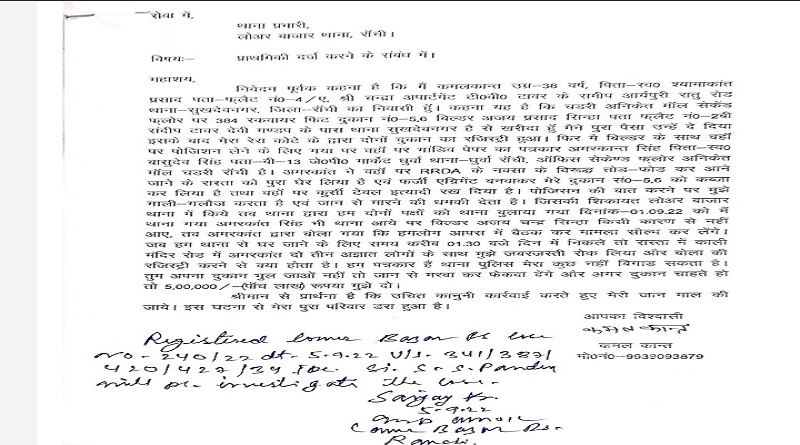 सेवा में,
थाना प्रभारी,
लोअर बाजार थाना, राँची।
विषयः— प्राथमिकी दर्ज करने के संबंध में।
महाशय,
निवेदन पूर्वक कहना है कि मैं कमलकान्त उम्र—38 वर्ष, पिता—स्व० श्यामाकांत
प्रसाद पता—फ्लैट नं०—4/ए, श्री चन्द्रा अपार्टमेंट टी०वी० टावर के समीप आर्यपुरी रातु रोड
थाना—सुखदेवनगर, जिला—राँची का निवासी हूँ। कहना यह है कि चडरी अनिकेत मॉल सेकेंड
फ्लोर पर 384 स्कवायर फिट दुकान नं०—5,6 बिल्डर अजय प्रसाद सिन्हा पता फ्लैट नं०—2बी
संदीप टावर देवी मण्डप के पास थाना सुखदेवनगर है से खरीदा हूँ मैने पुरा पैसा उन्हें दे दिया
इसके बाद मेरा रेरा कोर्ट के द्वारा दोनों दुकान का रजिस्ट्री हुआ। फिर मैं बिल्डर के साथ वहाँ
पर पोजिशन लेने के लिए गया पर वहाँ पर गांडिव पेपर का पत्रकार अमरकान्त सिंह पिता—स्व०
वासुदेव सिंह पता—बी—13 जे०पी० मार्केट धुर्वा थाना—धुर्वा राँची, ऑफिस सेकेण्ड फ्लोर अनिकेत
मॉल चडरी राँची है। अमरकांत ने वहाँ पर RRDA के नक्सा के विरुद्ध तोड़—फोड़ कर आने
जाने के रास्ता को पुरा घेर लिया है एवं फर्जी एग्रिमेंट बनवाकर मेरे दुकान सं०—5,6 को कब्जा
कर लिया है तथा वहाँ पर कुर्सी टेबल इत्यादी रख दिया है। पोजिसन की बात करने पर मुझे
गाली—गलौज करता है एवं जान से मारने की धमकी देता है। जिसकी शिकायत लोअर बाजार
थाना में किये तब थाना द्वारा हम दोनों पक्षों को थाना बुलाया गया दिनांक—01.09.22 को मैं
थाना गया अमरकांत सिंह भी थाना आये पर बिल्डर अजय चन्द्र सिन्हा किसी कारण से नहीं
आए, तब अमरकांत द्वारा बोला गया कि हमलोग आपस में बैठक कर मामला सोल्भ कर लेंगे।
जब हम थाना से घर जाने के लिए समय करीब 01.30 बजे दिन में निकले तो रास्ता में काली
मंदिर रोड में अमरकांत दो तीन अज्ञात लोगों के साथ मुझे जबरजस्ती रोक लिया और बोला की
रजिस्ट्री करने से क्या होता है। हम पत्रकार हैं थाना पुलिस मेरा कुछ नहीं बिगाड़ सकता है।
तुम अपना दुकान भुल जाओ नहीं तो जान से मरवा कर फेकवा देंगे और अगर दुकान चाहते हो
तो 5,00,000/—(पाँच लाख) रूपया मुझे दो।
श्रीमान से प्रार्थना है कि उचित कानुनी कार्रवाई करते हुए मेरी जान माल की
जाये। इस घटना से मेरा पुरा परिवार डरा हुआ है।
आपका विश्वासी
कमल कान्त
कमल कान्त
मो०नं०—9932093879
Registered Lower Bazar PS Case
No- 240/22 dt- 5.9.22 U/S- 341/387/
420/427/34 IPC. SI. S.S. Pandey
will pl. investigate the case.
Sanjay Kr.
5.9.22
Lower Bazar PS.
Ranchi.